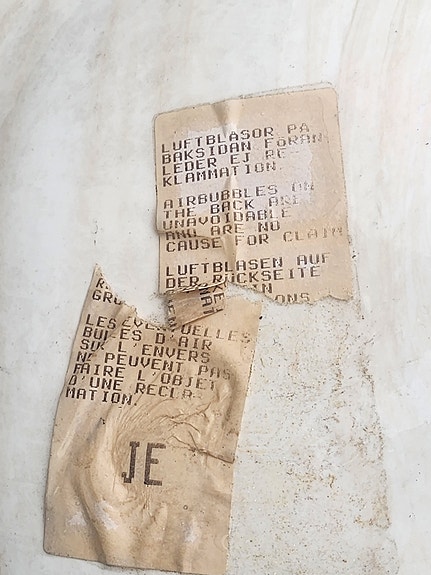 LUFTBLÅSOR PÅ
BAKSIDAN FÖRAN
LEDER EJ RE-
KLAMMATION.
AIRBUBBLES ON
THE BACK ARE
UNAVOIDABLE
AND ARE NO
CAUSE FOR CLAIM
LUFTBLASEN AUF
DER RÜCKSEITE
IN
IONS
GRU
LES EVENTUELLES
BULLES D'AIR
SUR L'ENVERS
NE PEUVENT PAS
FAIRE L'OBJET
D'UNE RECLA-
MATION.
JE